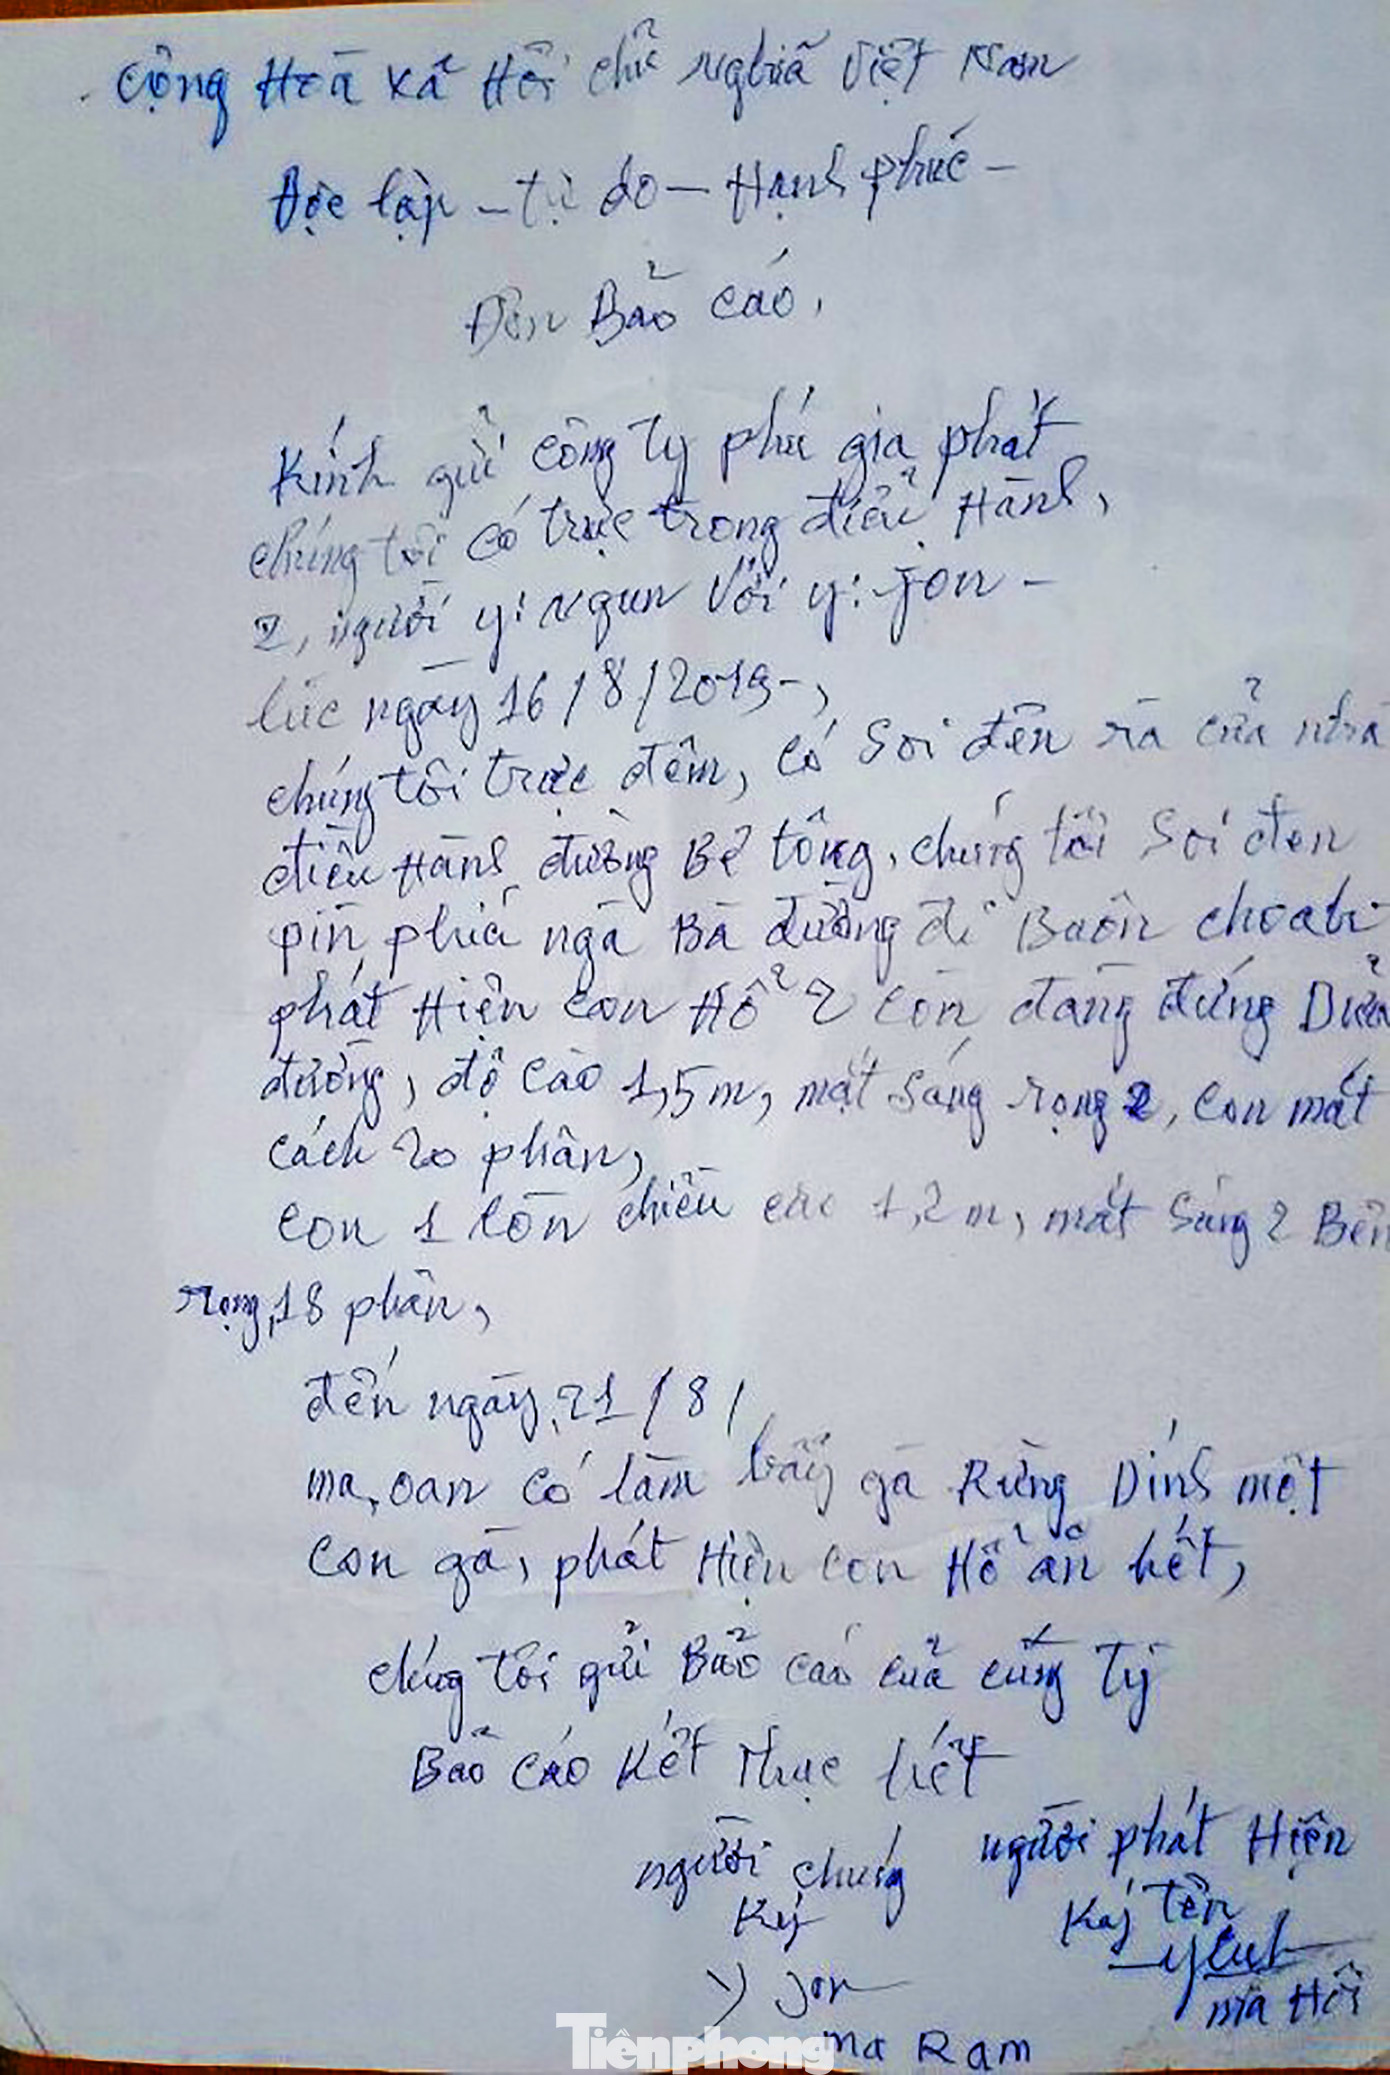 Cộng Hòa Xã Hội chủ nghĩa Việt Nam
Độc lập - tự do - Hạnh phúc -
Đơn Bảo cáo,
Kính gửi công ty phú gia phát
chúng tôi có trực trong điểu Hành,
2, người y: Ngun Với y: jon -
lúc ngày 16/8/2019-,
chúng tôi trực đêm, có Soi đền ra của nhà
điều Hành đường Bê tông, chúng tôi Soi đen
pin, phiá ngã Ba đường đi Buôn choah
phát Hiện con Hổ 2 con đang đứng Dưả
đường, độ cao 1,5m, mắt Sáng rọng 2, con mắt
cách 20 phân,
con 1 còn chiều cao 1,2m, mắt Sáng 2 Bên
rọng, 18 phân,
đến ngày, 21/8/
ma, oan có làm bẫy gà Rừng Dính một
con gà, phát Hiện con Hổ ăn hết,
chúng tôi gửi Bảo cáo cuả công ty
Bảo cáo kết thực hết
người chúng
ký
Y jon
ma Ram
người phát Hiện
Ký tên
ma Hồi
Tiênphong